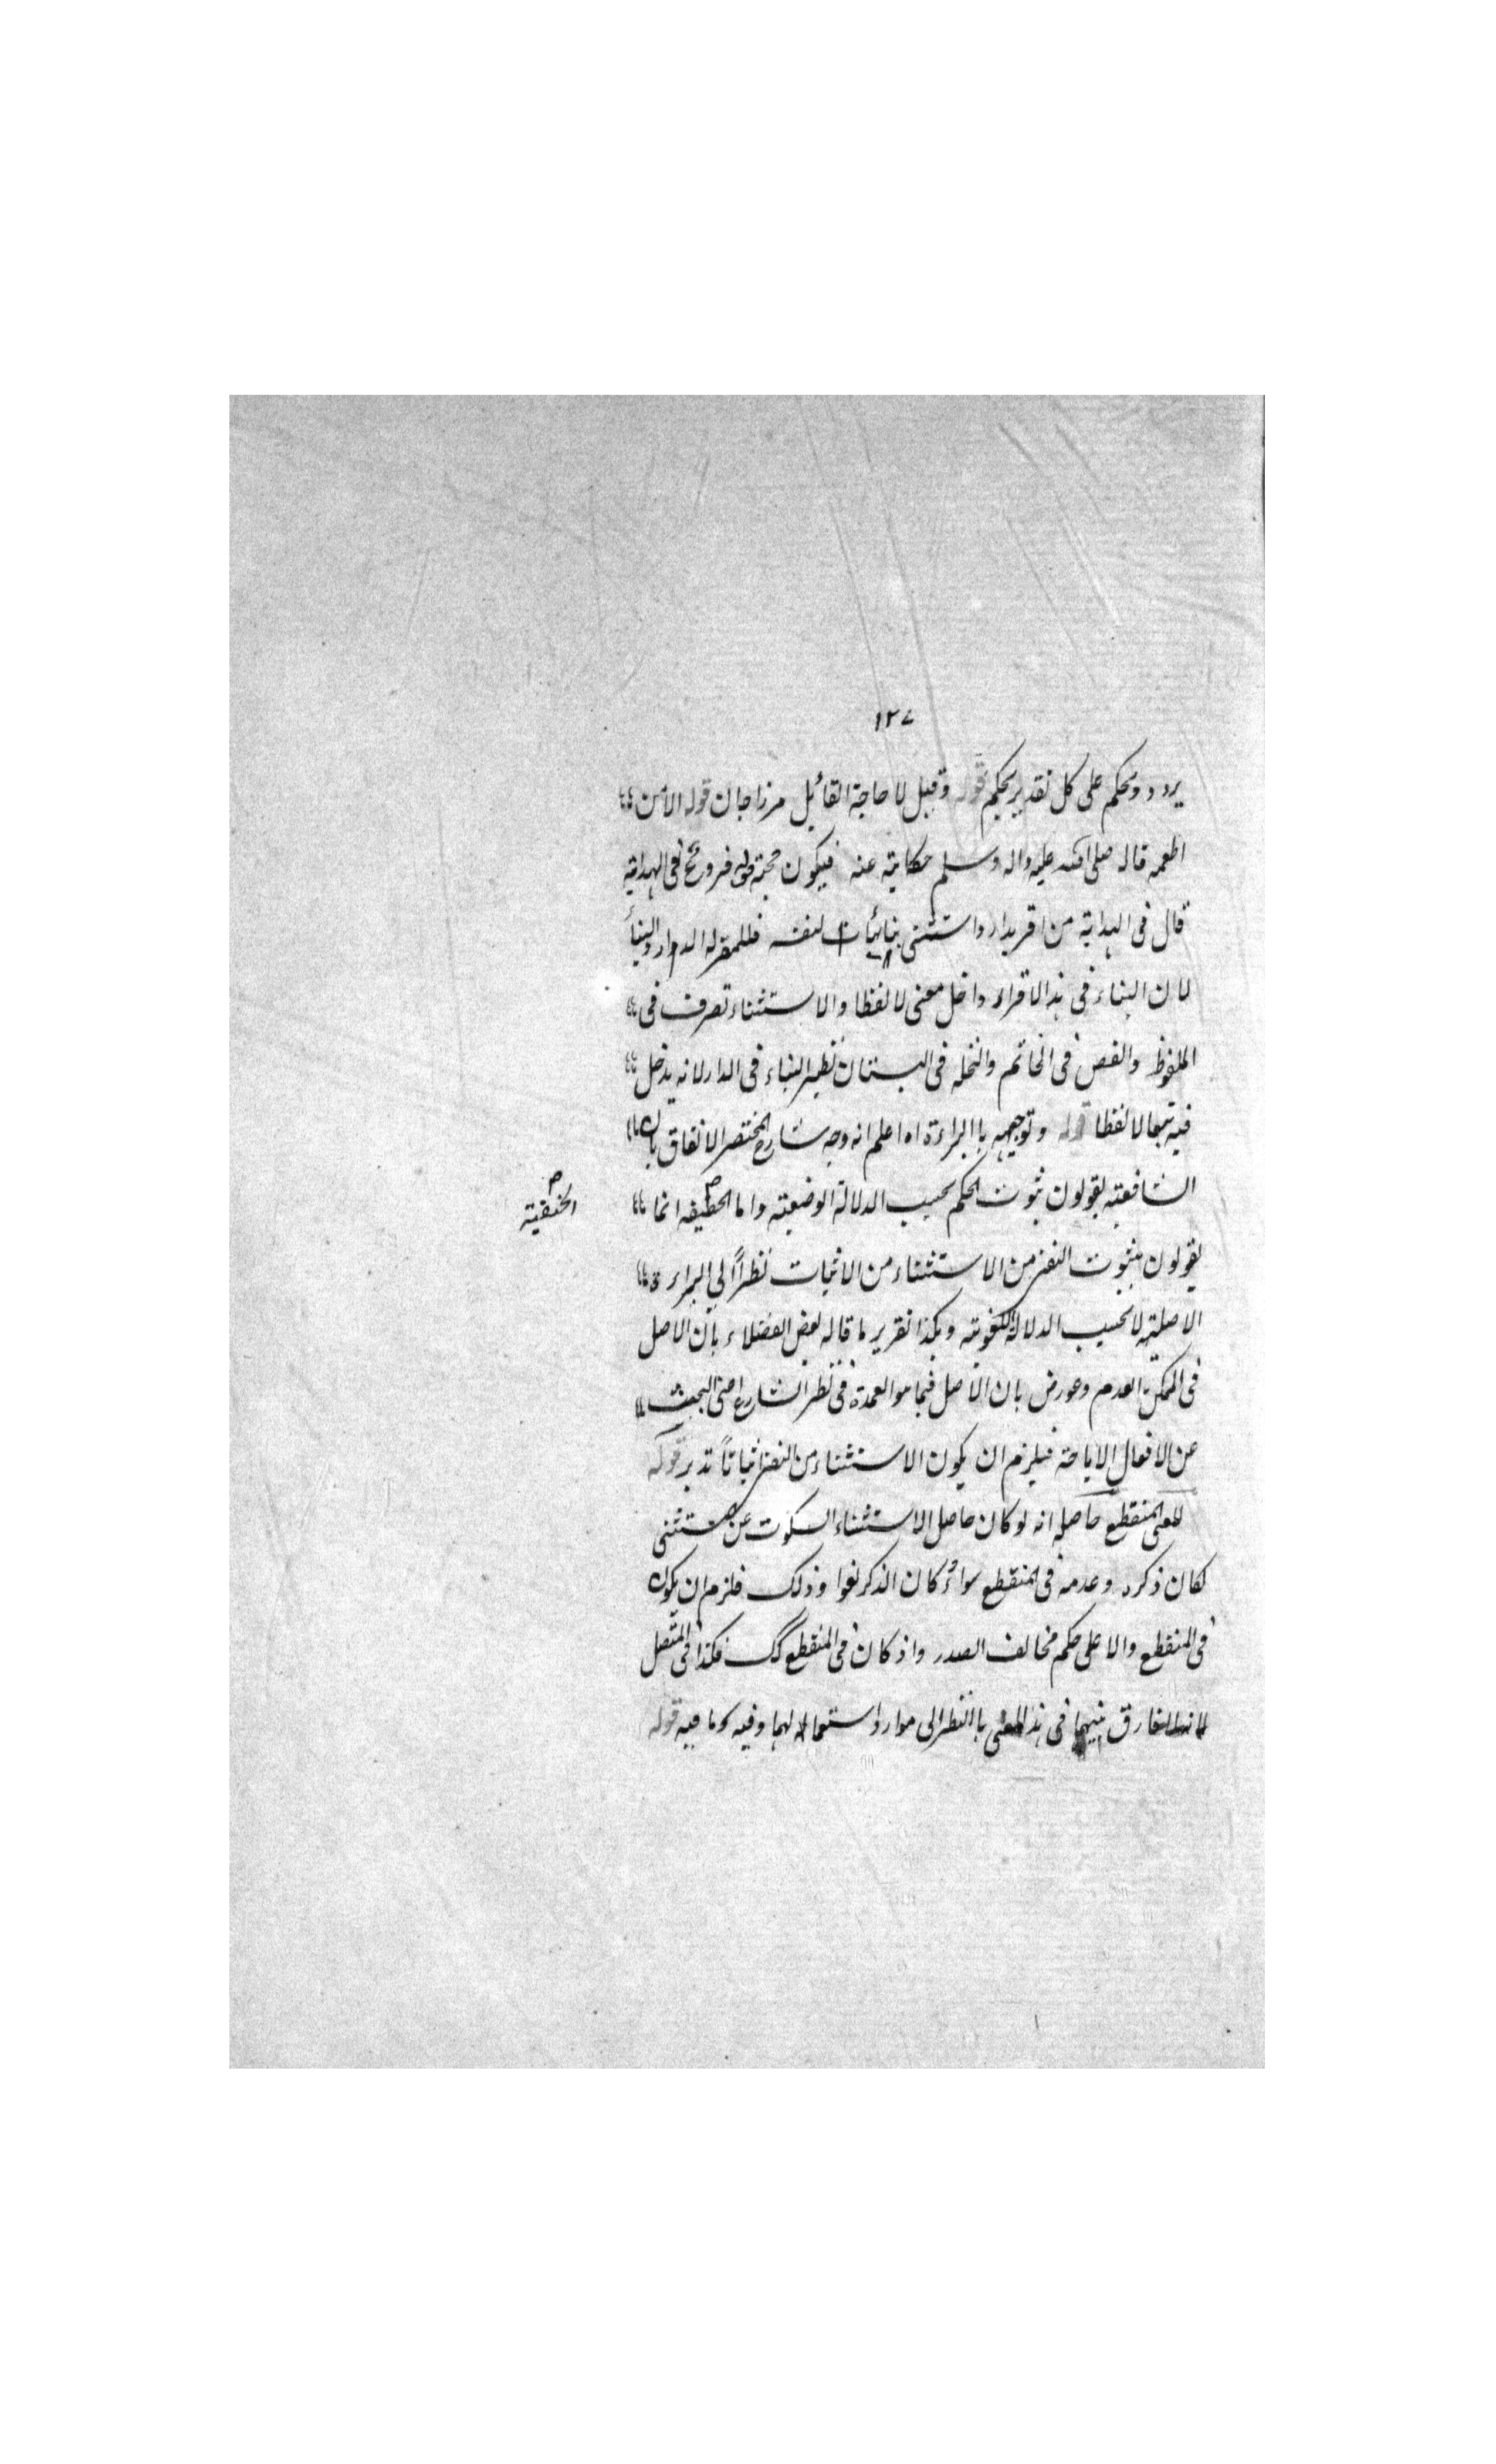 ١٢٧
يردد ويحكم على كل تقدير بحكم قوله وقيل لا حاجة القائل مرزاجان قوله الا من
اطعمه قاله صلى الله عليه واله وسلم حكاية عنه فيكون حجة قوله فروع ففى الهداية
قال فى الهداية من اقر بدار واستثنى بنائها لنفسه فللمقر له الدار والبناء
لان البناء فى هذا الاقرار داخل معنى لا لفظا والاستثناء تصرف فى
الملفوظ والفص فى الخاتم والنخلة فى البستان نظير البناء فى الدار لانه يدخل
فيه تبعا لا لفظا قوله وتوجيهه باالبراءة اه اعلم انه وجه شارح المختصر الاتفاق بان
الشافعية يقولون ثبوت الحكم بحسب الدلالة الوضعية واما انما
الحنفية
يقولون بثبوت النفى من الاستثناء من الاثبات نظراً الى البراءة
الاصلية لا بحسب الدلالة اللغوية وهكذا تقرير ما قاله بعض الفضلاء بان الاصل
فى الممكن العدم وعورض بان الاصل فيما هو العمدة فى نظر الشارع اعنى البحث
عن الافعال الاباحة فيلزم ان يكون الاستثناء من النفى اثباتاً تدبر قوله
للمعنى المنقطع حاصله انه لو كان حاصل الاستثناء السكوت عن المستثنى
لكان ذكره وعدمه فى المنقطع سواءً كان الذكر لغوا وذلك فلزم ان يكون
فى المنقطع والا على حكم مخالف الصدر واذ كان فى المنقطع كك فكذا فى المتصل
الفارق بينهما فى هذا المعنى باالنظر الى موارد استعماله لهما وفيه ما فيه قوله